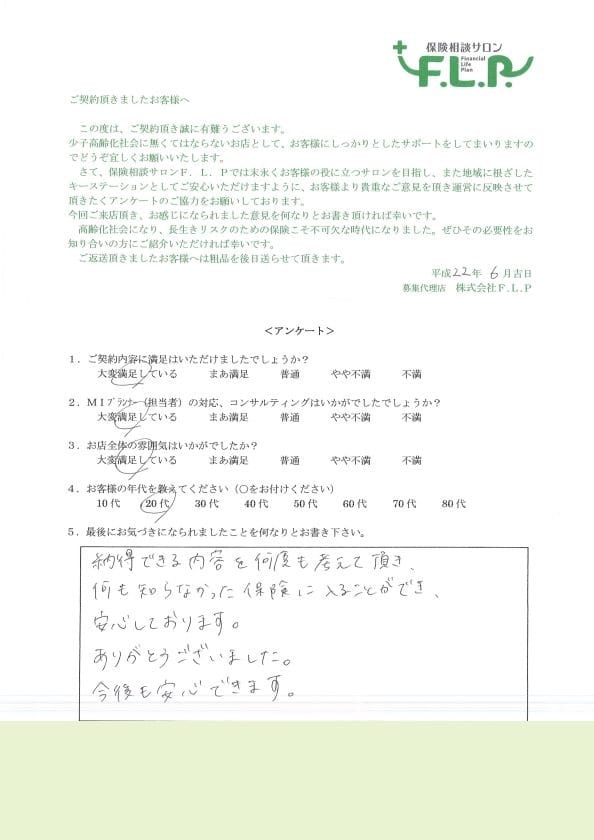 保険相談サロン
F.L.P.
Financial
Life
Plan
ご契約頂きましたお客様へ
この度は、ご契約頂き誠に有難うございます。
少子高齢化社会に無くてはならないお店として、お客様にしっかりとしたサポートをしてまいりますの
でどうぞ宜しくお願いいたします。
さて、保険相談サロンＦ．Ｌ．Ｐでは末永くお客様の役に立つサロンを目指し、また地域に根ざした
キーステーションとしてご安心いただけますように、お客様より貴重なご意見を頂き運営に反映させて
頂きたくアンケートのご協力をお願いしております。
今回ご来店頂き、お感じになられました意見を何なりとお書き頂ければ幸いです。
高齢化社会になり、長生きリスクのための保険こそ不可欠な時代になりました。ぜひその必要性をお
知り合いの方にご紹介いただければ幸いです。
ご返送頂きましたお客様へは粗品を後日送らせて頂きます。
平成22年 6月吉日
募集代理店 株式会社Ｆ.Ｌ.Ｐ
＜アンケート＞
１．ご契約内容に満足はいただけましたでしょうか？
大変満足している まあ満足 普通 やや不満 不満
２．ＭＩﾌﾟﾗﾝﾅｰ（担当者）の対応、コンサルティングはいかがでしたでしょうか？
大変満足している まあ満足 普通 やや不満 不満
３．お店全体の雰囲気はいかがでしたか？
大変満足している まあ満足 普通 やや不満 不満
４．お客様の年代を教えてください（○をお付けください）
10代 20代 30代 40代 50代 60代 70代 80代
５．最後にお気づきになられましたことを何なりとお書き下さい。
納得できる内容を何度も考えて頂き、
何も知らなかった保険に入ることができ、
安心しております。
ありがとうございました。
今後も安心できます。